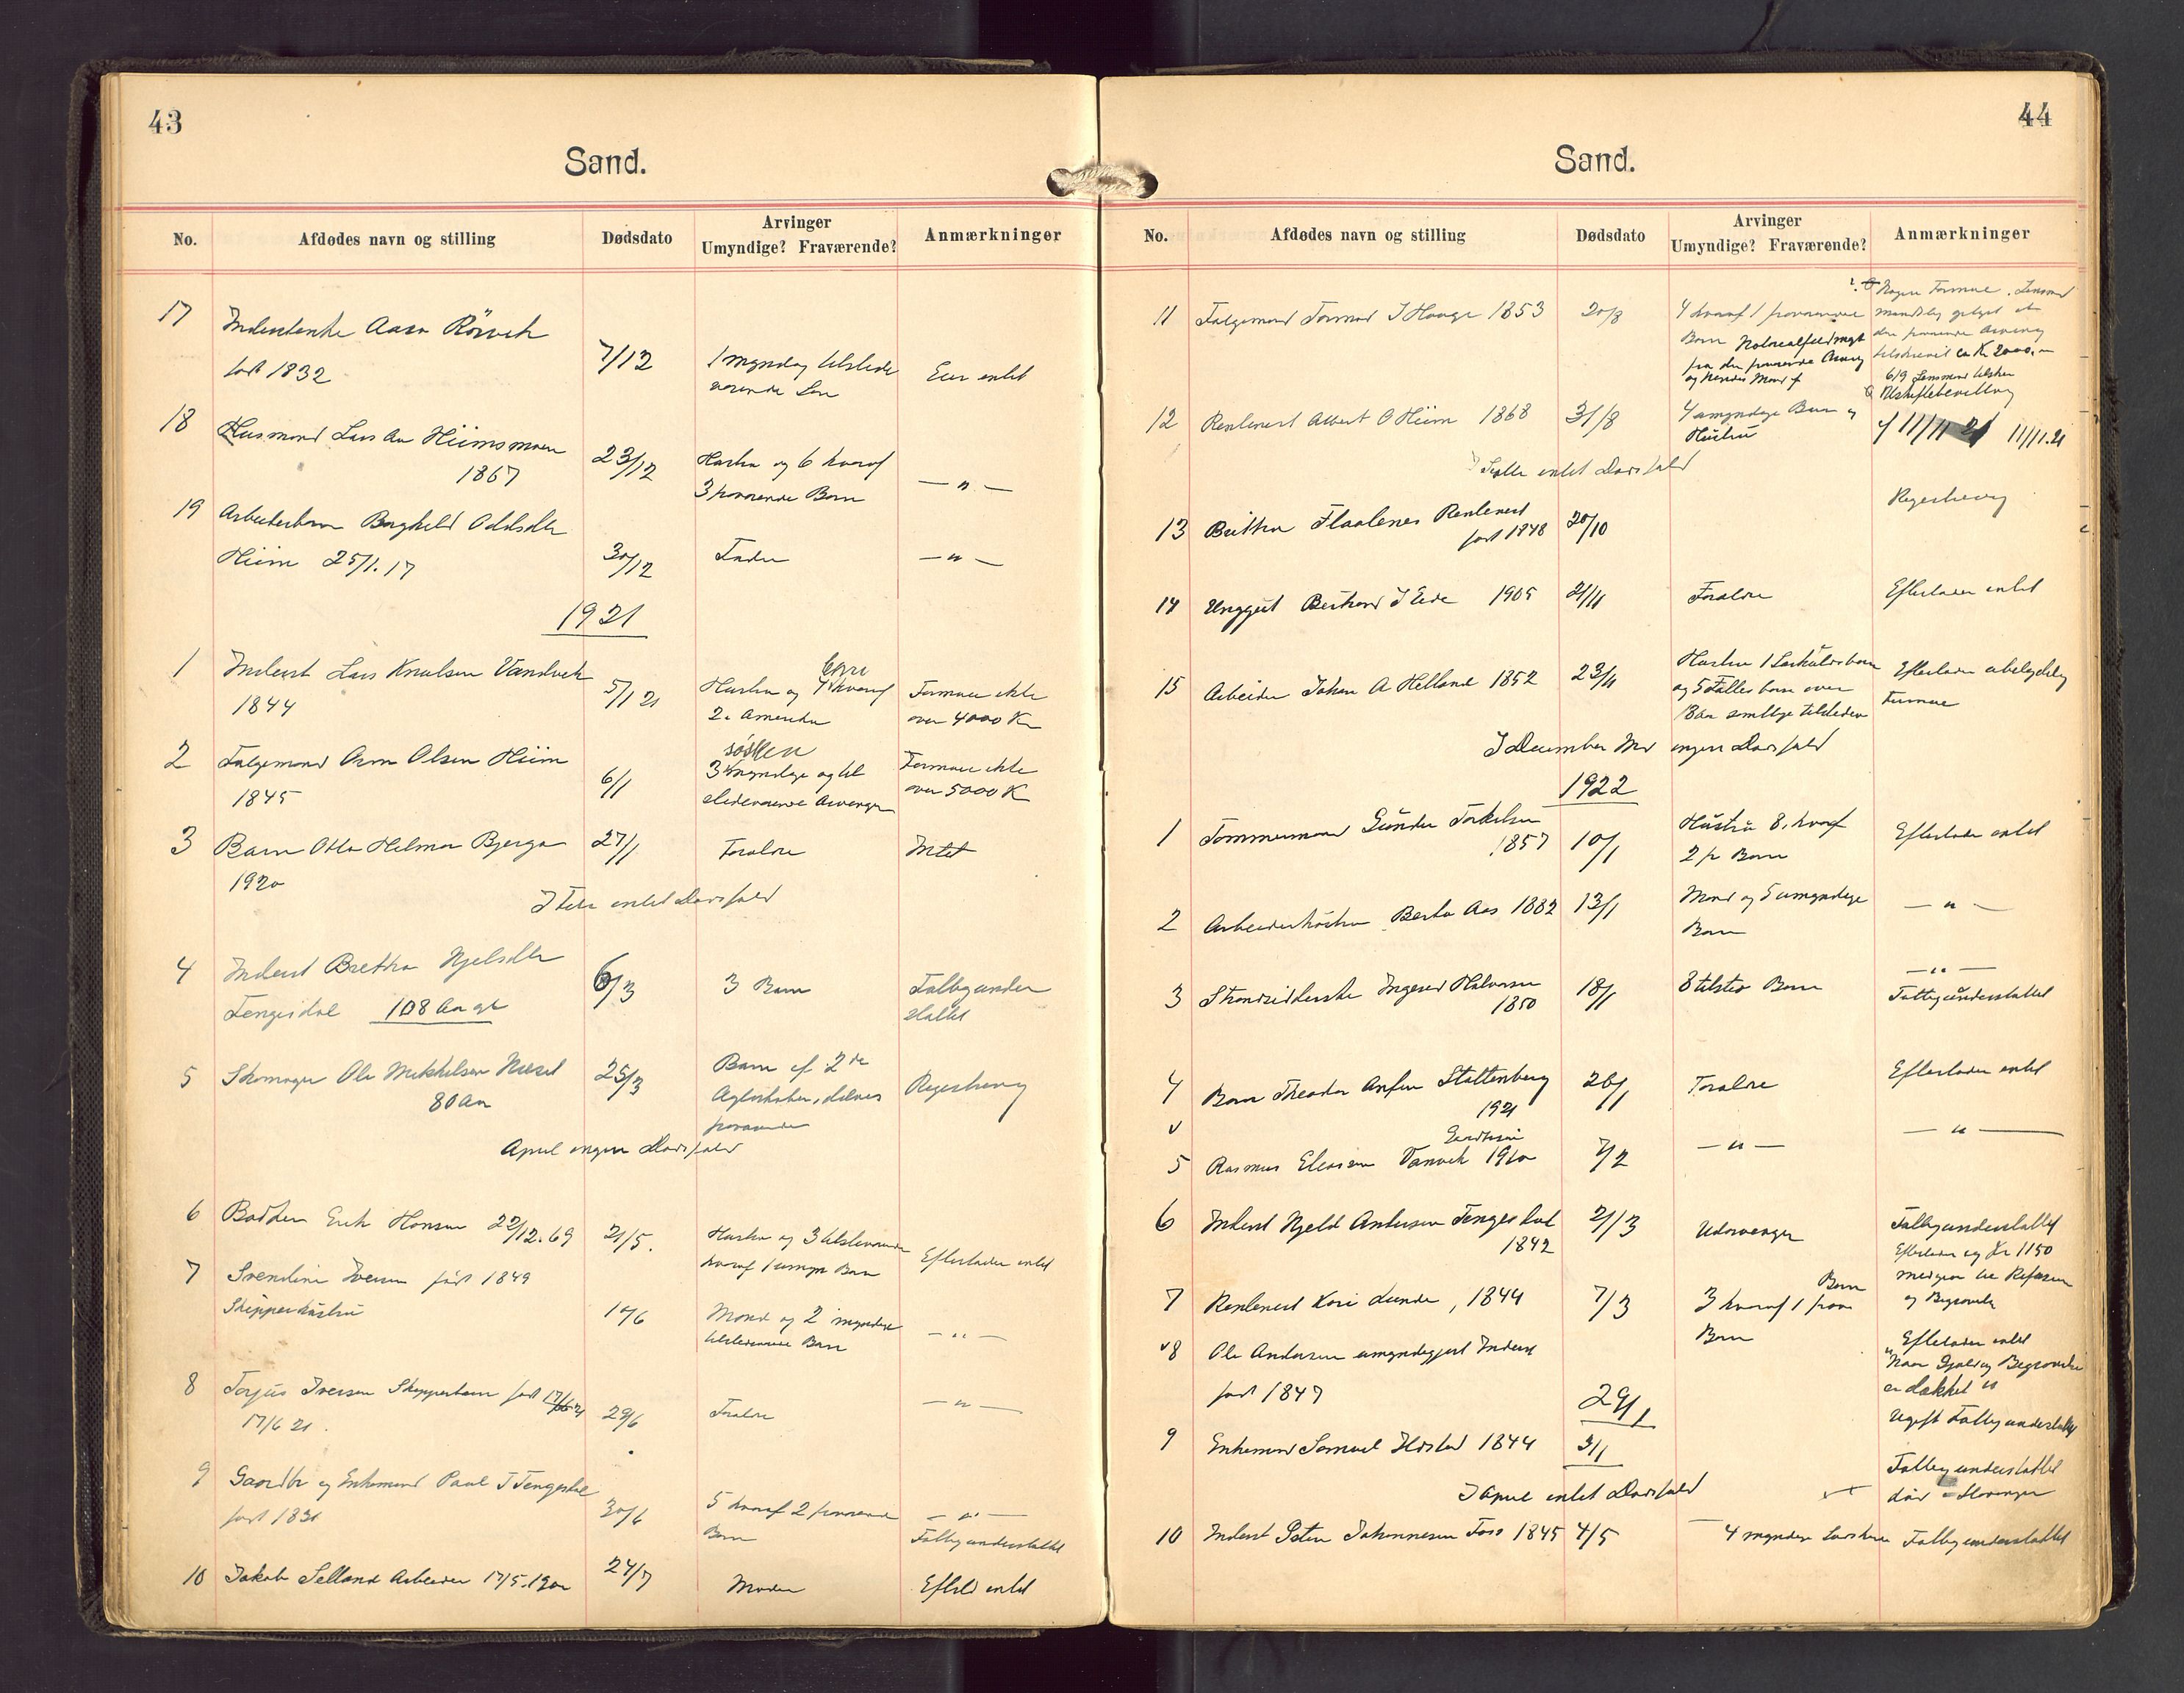 43
Sand.
No. Afdødes navn og stilling Dødsdato Arvinger Umyndige? Fraværende? Anmærkninger
17 Aasa Rörvik 7/12 1 myndig tilstede
født 1832 værende Søn Eier intet
18 Husmand Lars Aa Hiimsmoen 23/12 Hustru og 6 hvoraf — " —
1867 3 fraværende Børn
19 Arbeiderbarn Borghild Oddsdtr
Hiim 25/1.17 30/12 Fader — " —
1921
1 Inderst Lars Knutsen Vandvik 5/1 21 Hustru og 7 hvoraf Børn Formue ikke
1844 2 i Amerika over 4000 Kr
2 Følgemand Olsen Hiim 6/1 søsken Formue ikke
1845 3 myndige og til over 5000 K
stedeværende Arvinger
3 Barn Otto Helmer Bjerga 27/1 Forældre Intet
1920
I Febr intet Dødsfald
4 Inderst Brettha Njelsdtr 6/3 3 Børn Fattigunder
Tengesdal 108 Aar gl støttet
5 Skomager Ole Mikkelsen Næset 25/3 Barn af 2de Registrering
80 Aar Ægteskaber, delvis
fraværende
April ingen Dødsfald
6 Erik Hansen 22/12.69 21/5. Hustru og 3 tilstedeværende Efterlader intet
hvoraf 1 umyn Barn
7 Svendine Iversen født 1849
Skipperhustru 17/6 Mand og 2 myndige — " —
tilstedeværende Børn
8 Torjus Iversen Skipperbarn født
17/6 21. 29/6 Forældre — " —
9 Gaardbr og Enkemand Paul T Tengesdal
født 1831 30/6 5 hvoraf 2 fraværende — " —
Børn Fattigunderstøttet
10 Jakob Selland Arbeider 17/5.1900 24/7 Moder Efterl intet
44
Sand.
No. Afdødes navn og stilling Dødsdato Arvinger Umyndige? Fraværende? Anmærkninger
11 Følgemand Tormod I Hauge 1853 20/8 4 hvoraf 1 fraværende Nogen Formue. Lensmand
Børn
fra den fraværende Arving ca Kr 2000,-
og hendes Mand 6/9 Lensmand
Utskiftebevilling
12 Rentenist Albert O Hiim 1868 31/8 4 umyndige Børn og
Hustru 11/11 21 11/11.21
intet Dødsfald
13 Brittha Flaatenes Rentenist 20/10 Registrering
født 1848
14 Unggut Bertrand I Eide 1905 2/11 Forældre Efterlader intet
15 Arbeider Johan A Helland 1852 23/11 Hustru 1 Særkuldsbarn Efterlader ubetydelig
og 5 Fællesbørn over Formue
18 Aar samtlige tilstede
I December Md ingen Dødsfald
1922
1 Tømmermand Gunder Torkelsen 10/1 Hustru 8, hvoraf Efterlader intet
1857 2 fr Børn
2 Arbeiderhustru Berta Aas 1882 13/1 Mand og 5 umyndige — " —
Børn
3 Strandsidderske Ingeborg Halvorsen 18/1 8 tilsted Børn — " —
1850 Fattigunderstøttet
4 Barn Theodor Arfin Stattenberg 26/1 Forældre Efterlader intet
1921
5 Rasmus Vanvik 1910 7/2 — " — — " —
6 Inderst Njeld Andersen Tengesdal 2/3 Udarvinger Fattigunderstøttet
1842 Efterlader og Kr 1150
medgaar til Refusion
og Begravelse
7 Rentenist Kari Lunde, 1844 7/3 3 hvoraf 1 frav Børn
Børn Efterlader intet
8 Ole Andersen umyndiggjort Inderst Naar Gjæld og Begravelse
født 1847 29/1 er dækket
Ugift Fattigunderstøttet
9 Enkemand Samuel 1844 3/1 Fattigunderstøttet
død i Stavanger
I April intet Dødsfald
10 Inderst Peter Johannesen Foss 1845 4/5 4 myndige Fattigunderstøttet